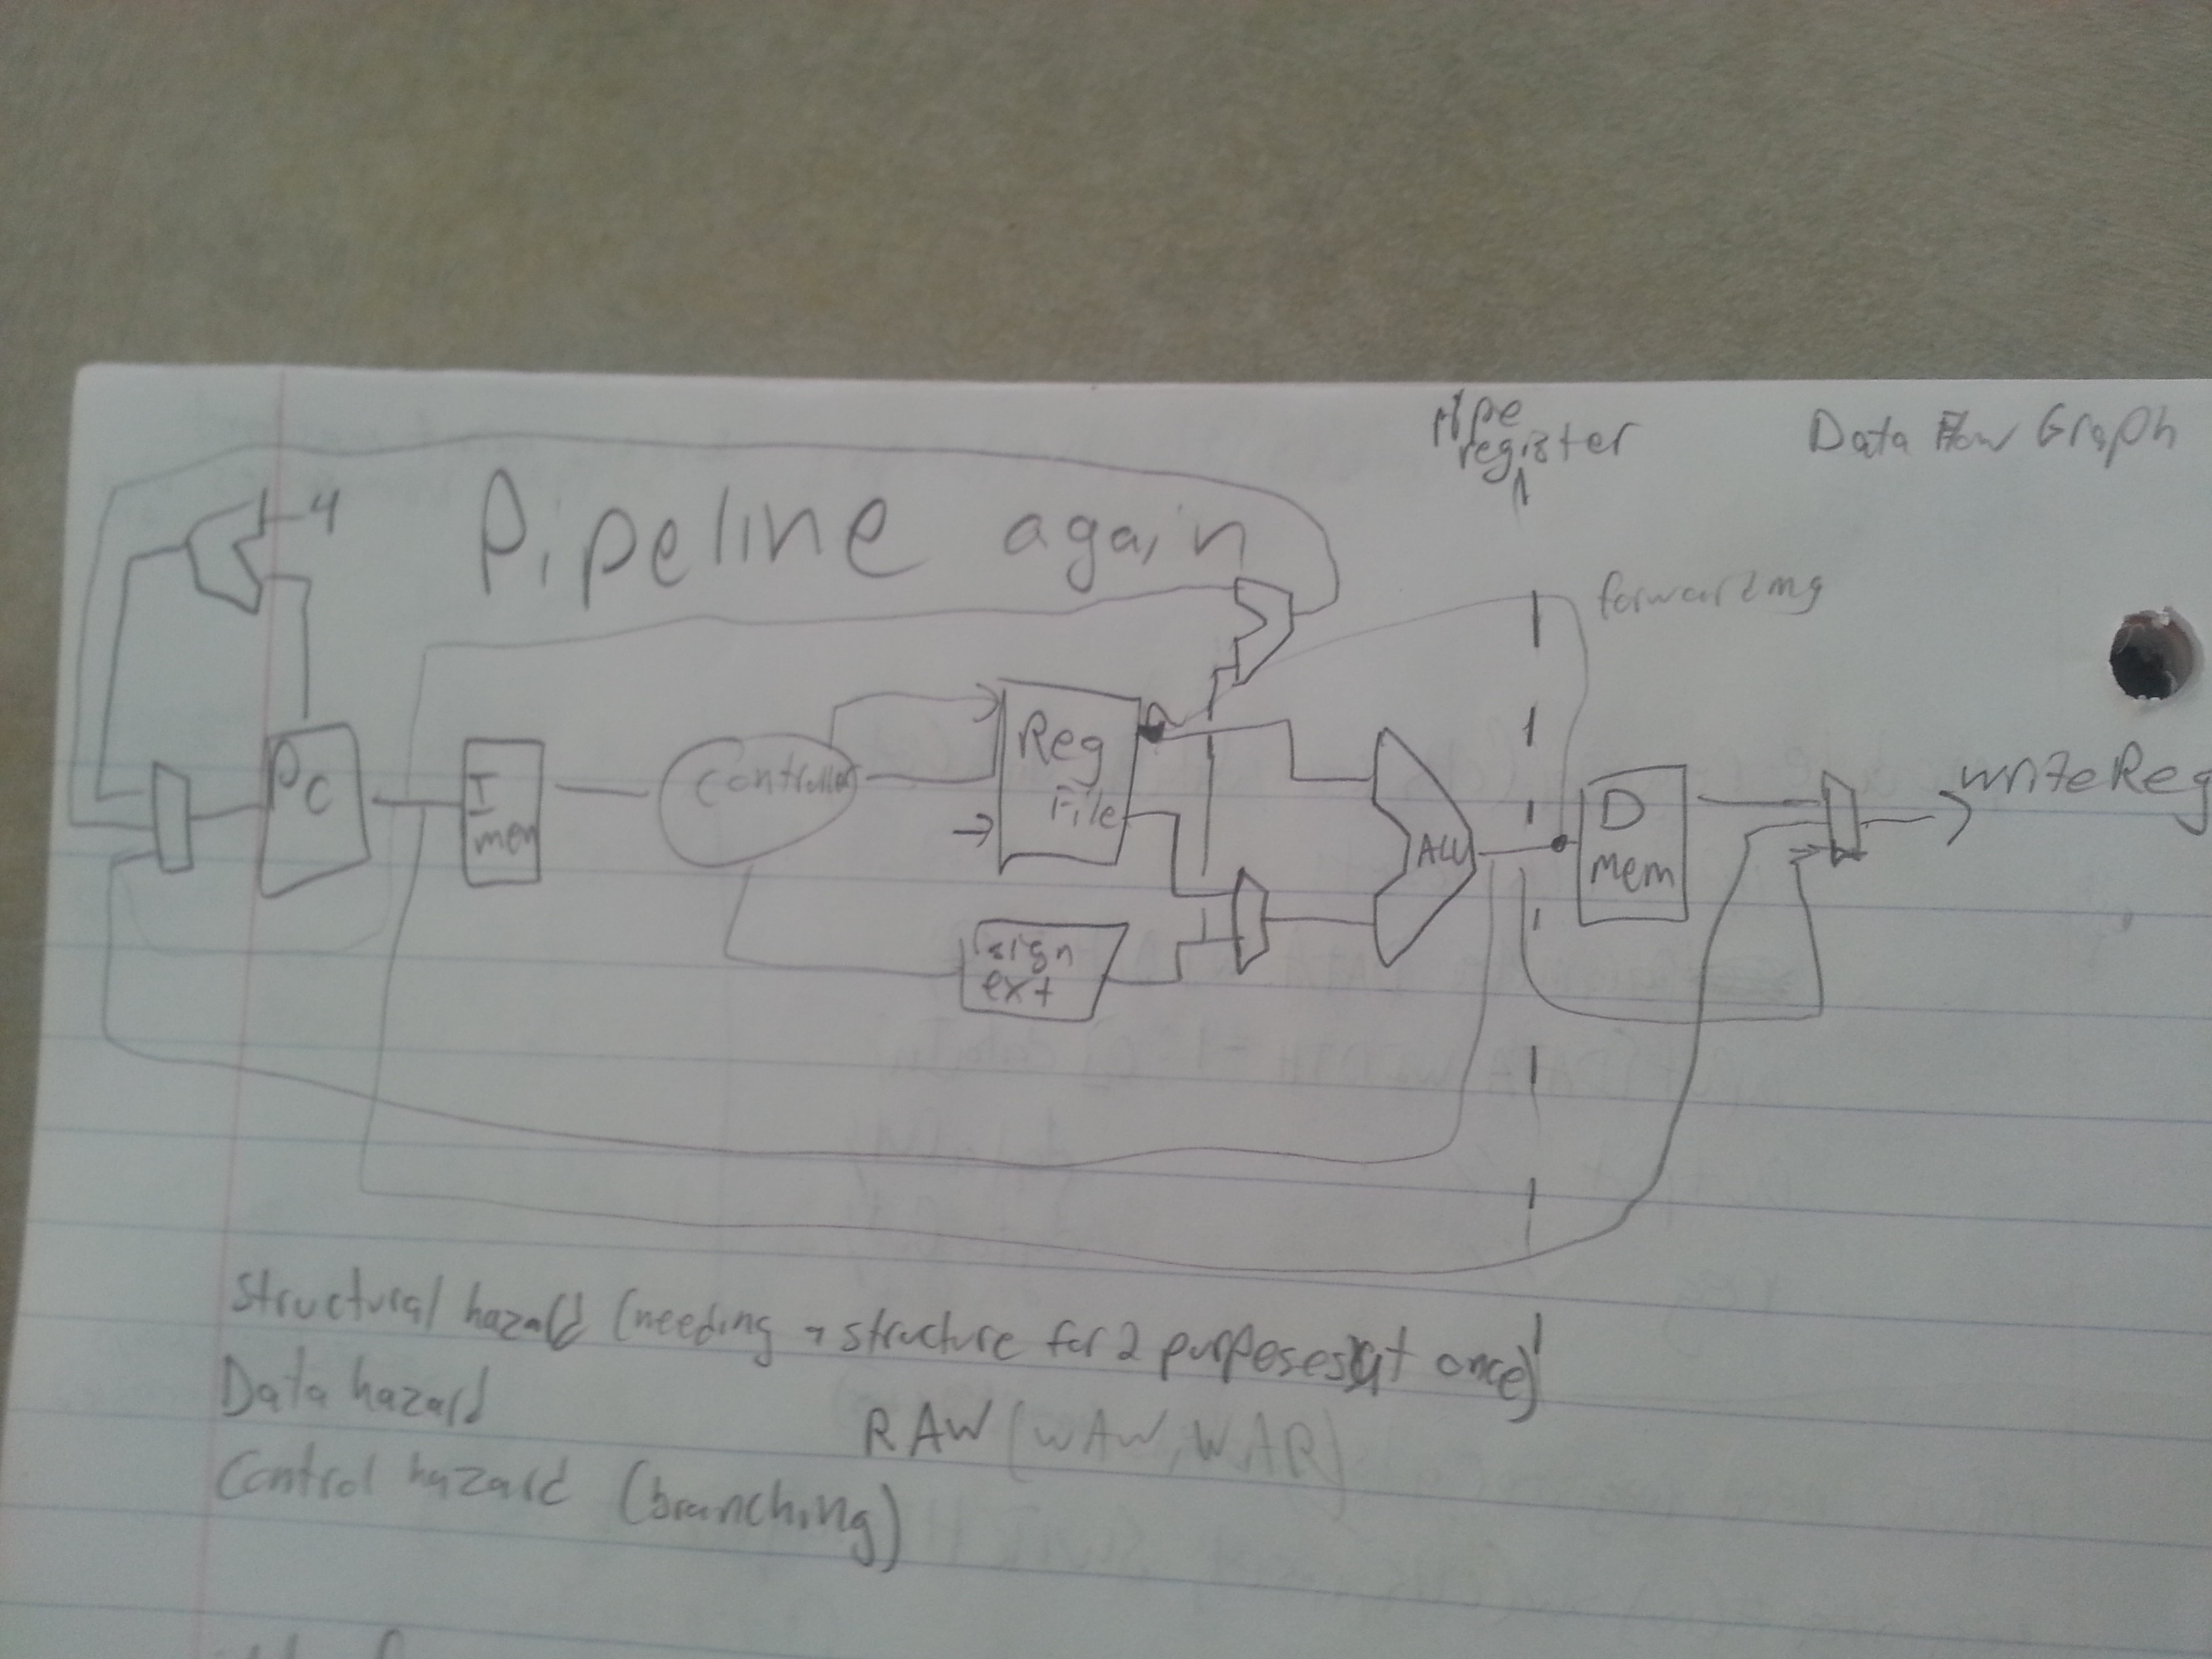 Pipe
register
Data Flow Graph
4
Pipeline again
forwarding
PC
I
mem
controller
Reg
File
ALU
D
mem
writeReg
sign
ext
Structural hazard (needing a structure for 2 purposes at once)
Data hazard
RAW (WAW, WAR)
Control hazard (branching)